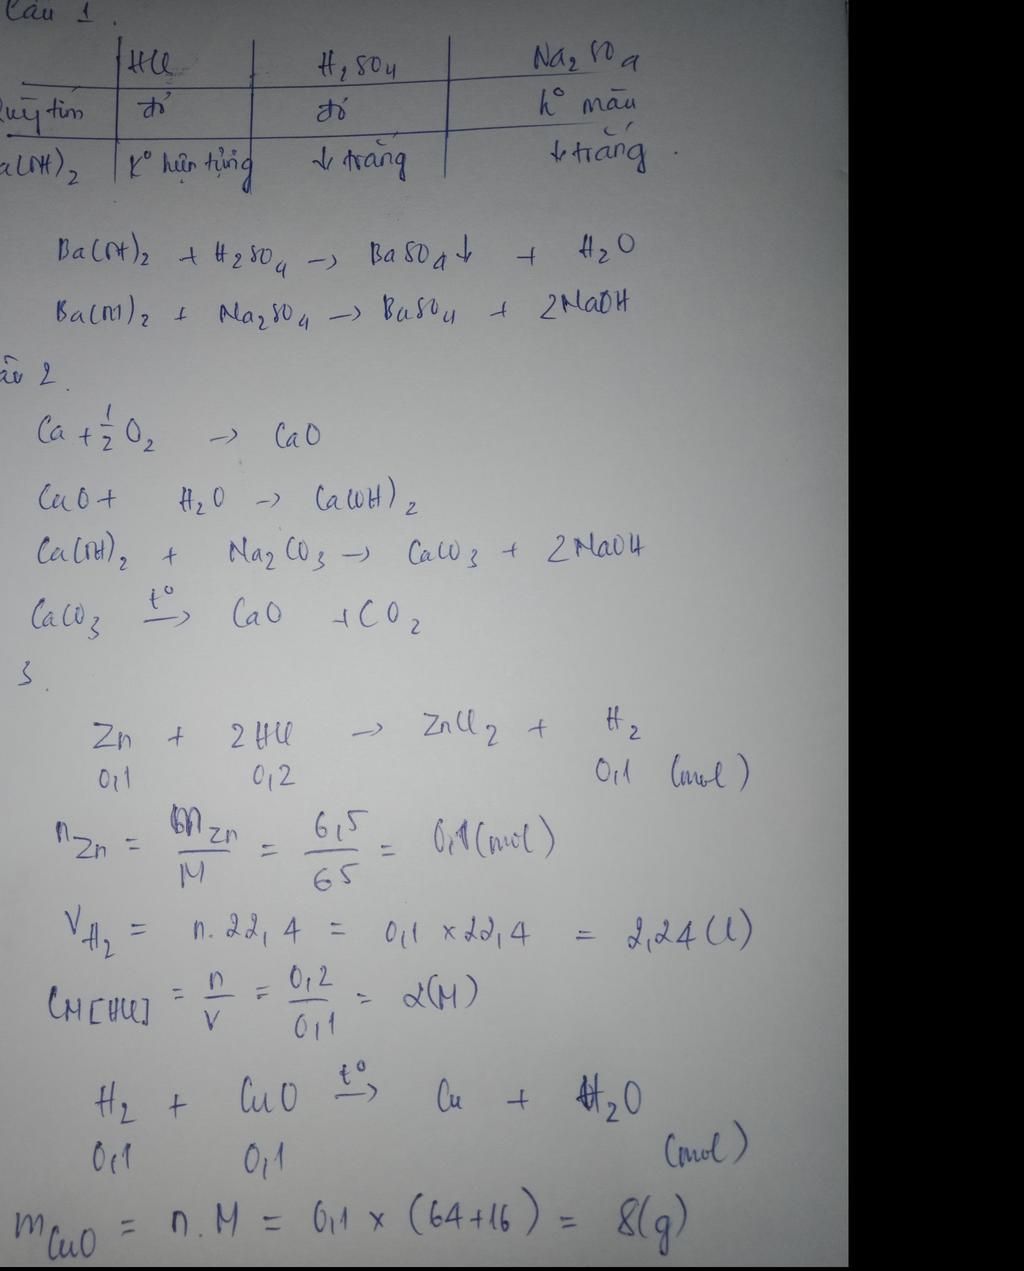 Câu 1.
HCl H2SO4 Na2SO4
Quỳ tím đỏ đỏ ko màu
a(OH)2 Ko hiện tượng ↓ trắng ↓ trắng.
Ba(OH)2 + H2SO4 → BaSO4↓ + H2O
Ba(OH)2 + Na2SO4 → BaSO4 + 2NaOH
âu 2.
Ca + 1/2 O2 → CaO
CaO + H2O → Ca(OH)2
Ca(OH)2 + Na2CO3 → CaCO3 + 2NaOH
CaCO3 —t°→ CaO + CO2
3.
Zn + 2HCl → ZnCl2 + H2
0,1 0,2 0,1 (mol)
nZn = mZn/M = 6,5/65 = 0,1(mol)
VH2 = n. 22,4 = 0,1 x 22,4 = 2,24(l)
CM[HCl] = n/V = 0,2/0,1 = 2(M)
H2 + CuO —t°→ Cu + H2O
0,1 0,1 (mol)
mCuO = n.M = 0,1 x (64+16) = 8(g)